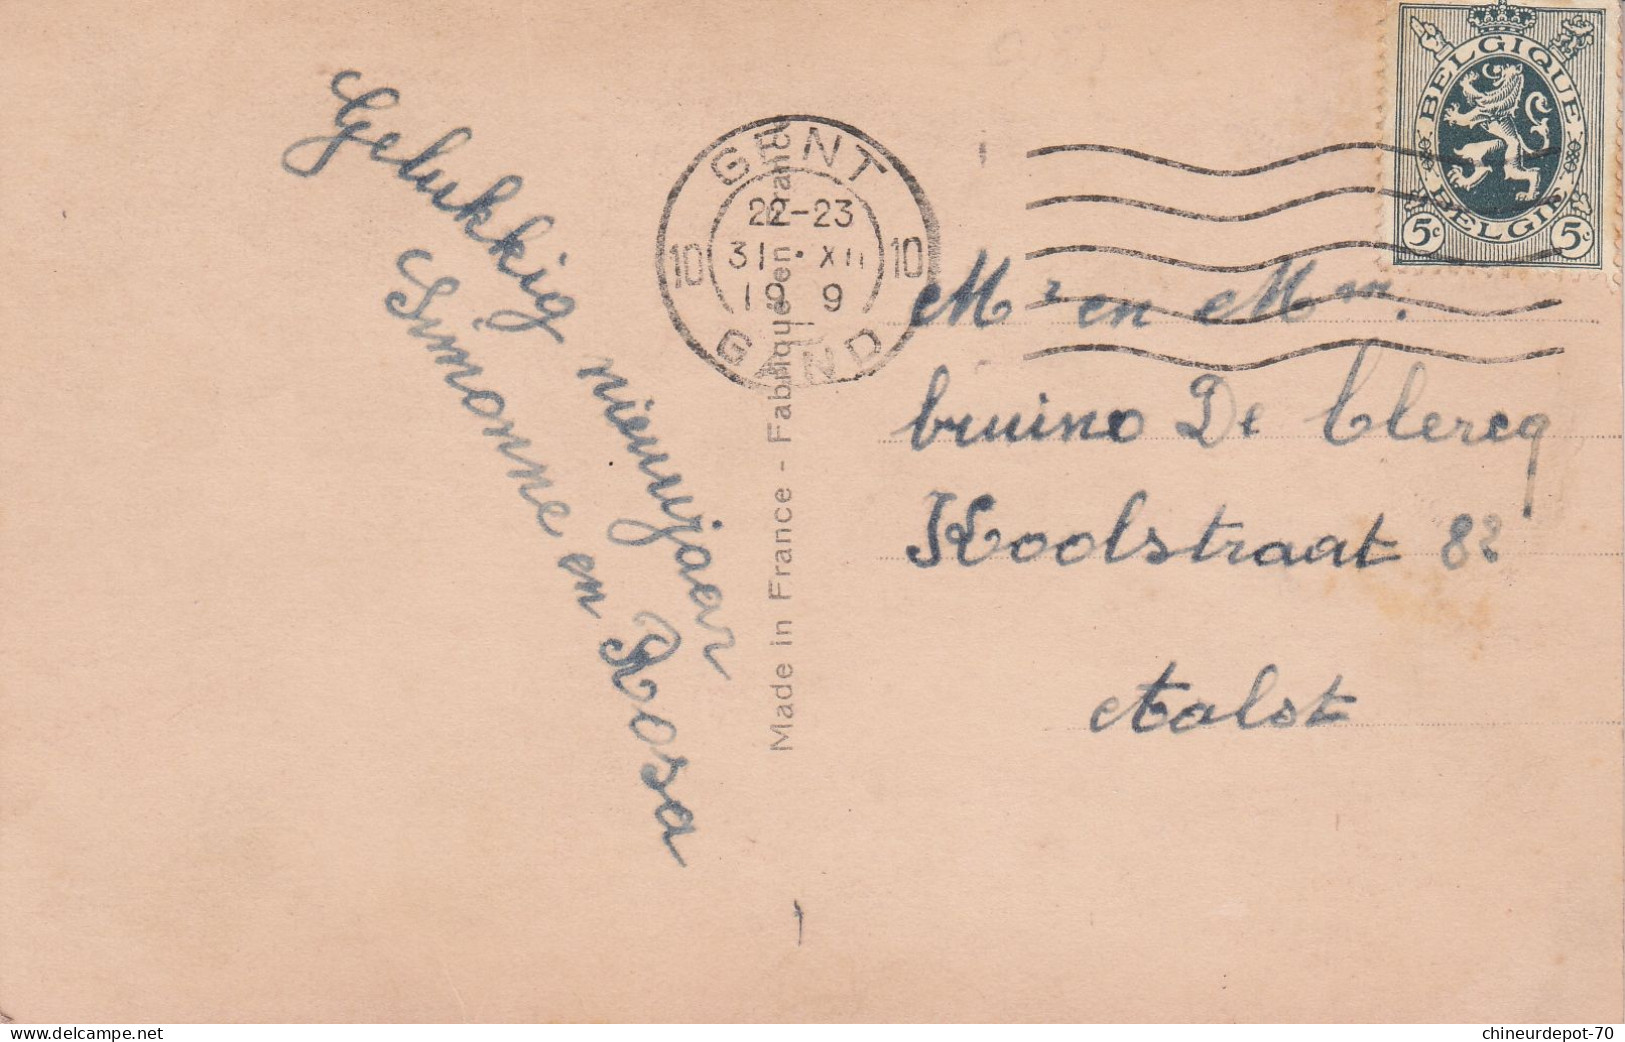 Gelukkig nieuwjaar
Simonne en Rosa
Made in France - Fabriqué en France
GENT
22-23
31 · XII
19 9
10 10
GAND
BELGIQUE
BELGIË
5c 5c
Mr en Mm.
bruino De Clercq
Koolstraat 82
Aalst
delcampe.net
chineurdepot-70